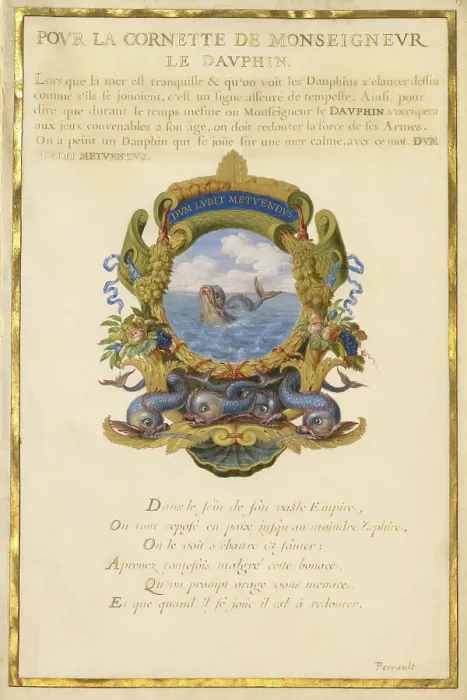 POVR LA CORNETTE DE MONSEIGNEVR
LE DAVPHIN.
Lors que la mer est tranquille & qu'on voit les Dauphins s'elancer dessus
comme s'ils se joüoient, c'est un signe asseuré de tempeste. Ainsi, pour
dire que durant le temps mesme ou Monseigneur le DAVPHIN s'occupera
aux jeux convenables a son âge, on doit redouter la force de ses Armes.
On a peint un Dauphin qui se joüe sur une mer calme, avec ce mot. DVM
LVDIT METVENDVS.
DVM LVDIT METVENDVS
Dans le sein de son vaste Empire,
On tout repose en paix jusqu'au moindre Zephire,
On le voit s'ebattre & sauter;
Aprenez toutefois malgré cette bonace,
Qu'un prompt orage vous menace,
Et que quand il se joüe il est à redouter.
Perrault